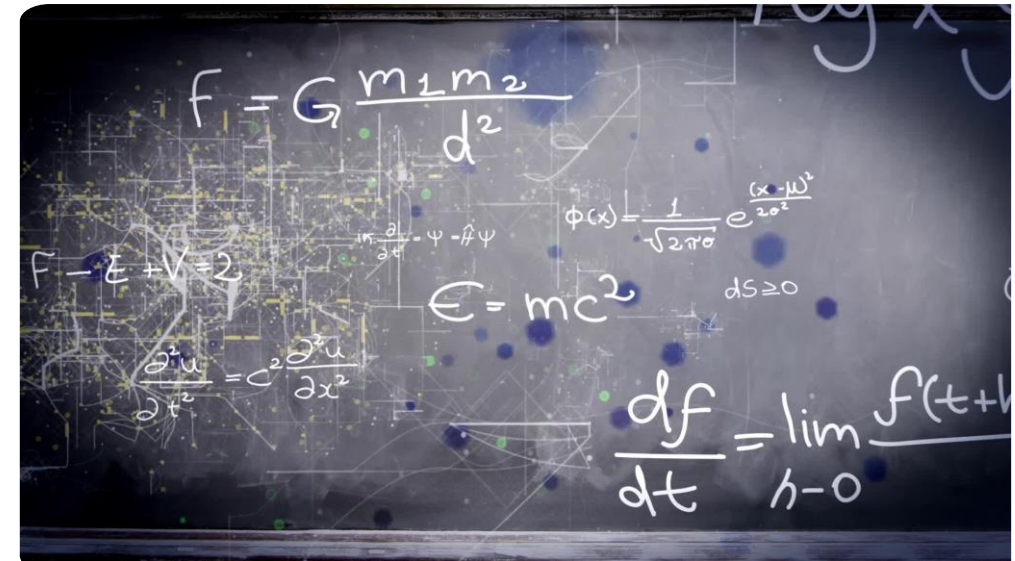 log x y
F = G m1m2 / d²
Φ(x) = 1 / √2πσ e (x-μ)² / 2σ²
iħ ∂ / ∂t - Ψ = ĤΨ
F - E + V = 2
E = mc²
dS ≥ 0
∂²u / ∂t² = c² ∂²u / ∂x²
df / dt = lim h-0 f(t+h